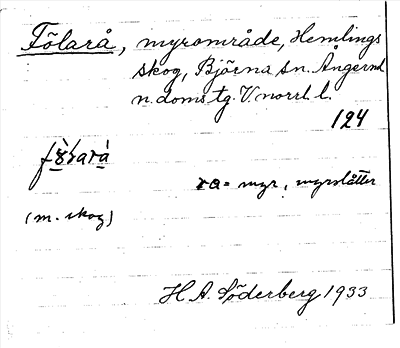 Fölarå, myrområde, Hemlings
skog, Björna sn. Ångerml.
n. doms tg. V. norrl. l.
124
ra = myr, myrslåtter
(m. skog)
H. A. Söderberg 1933